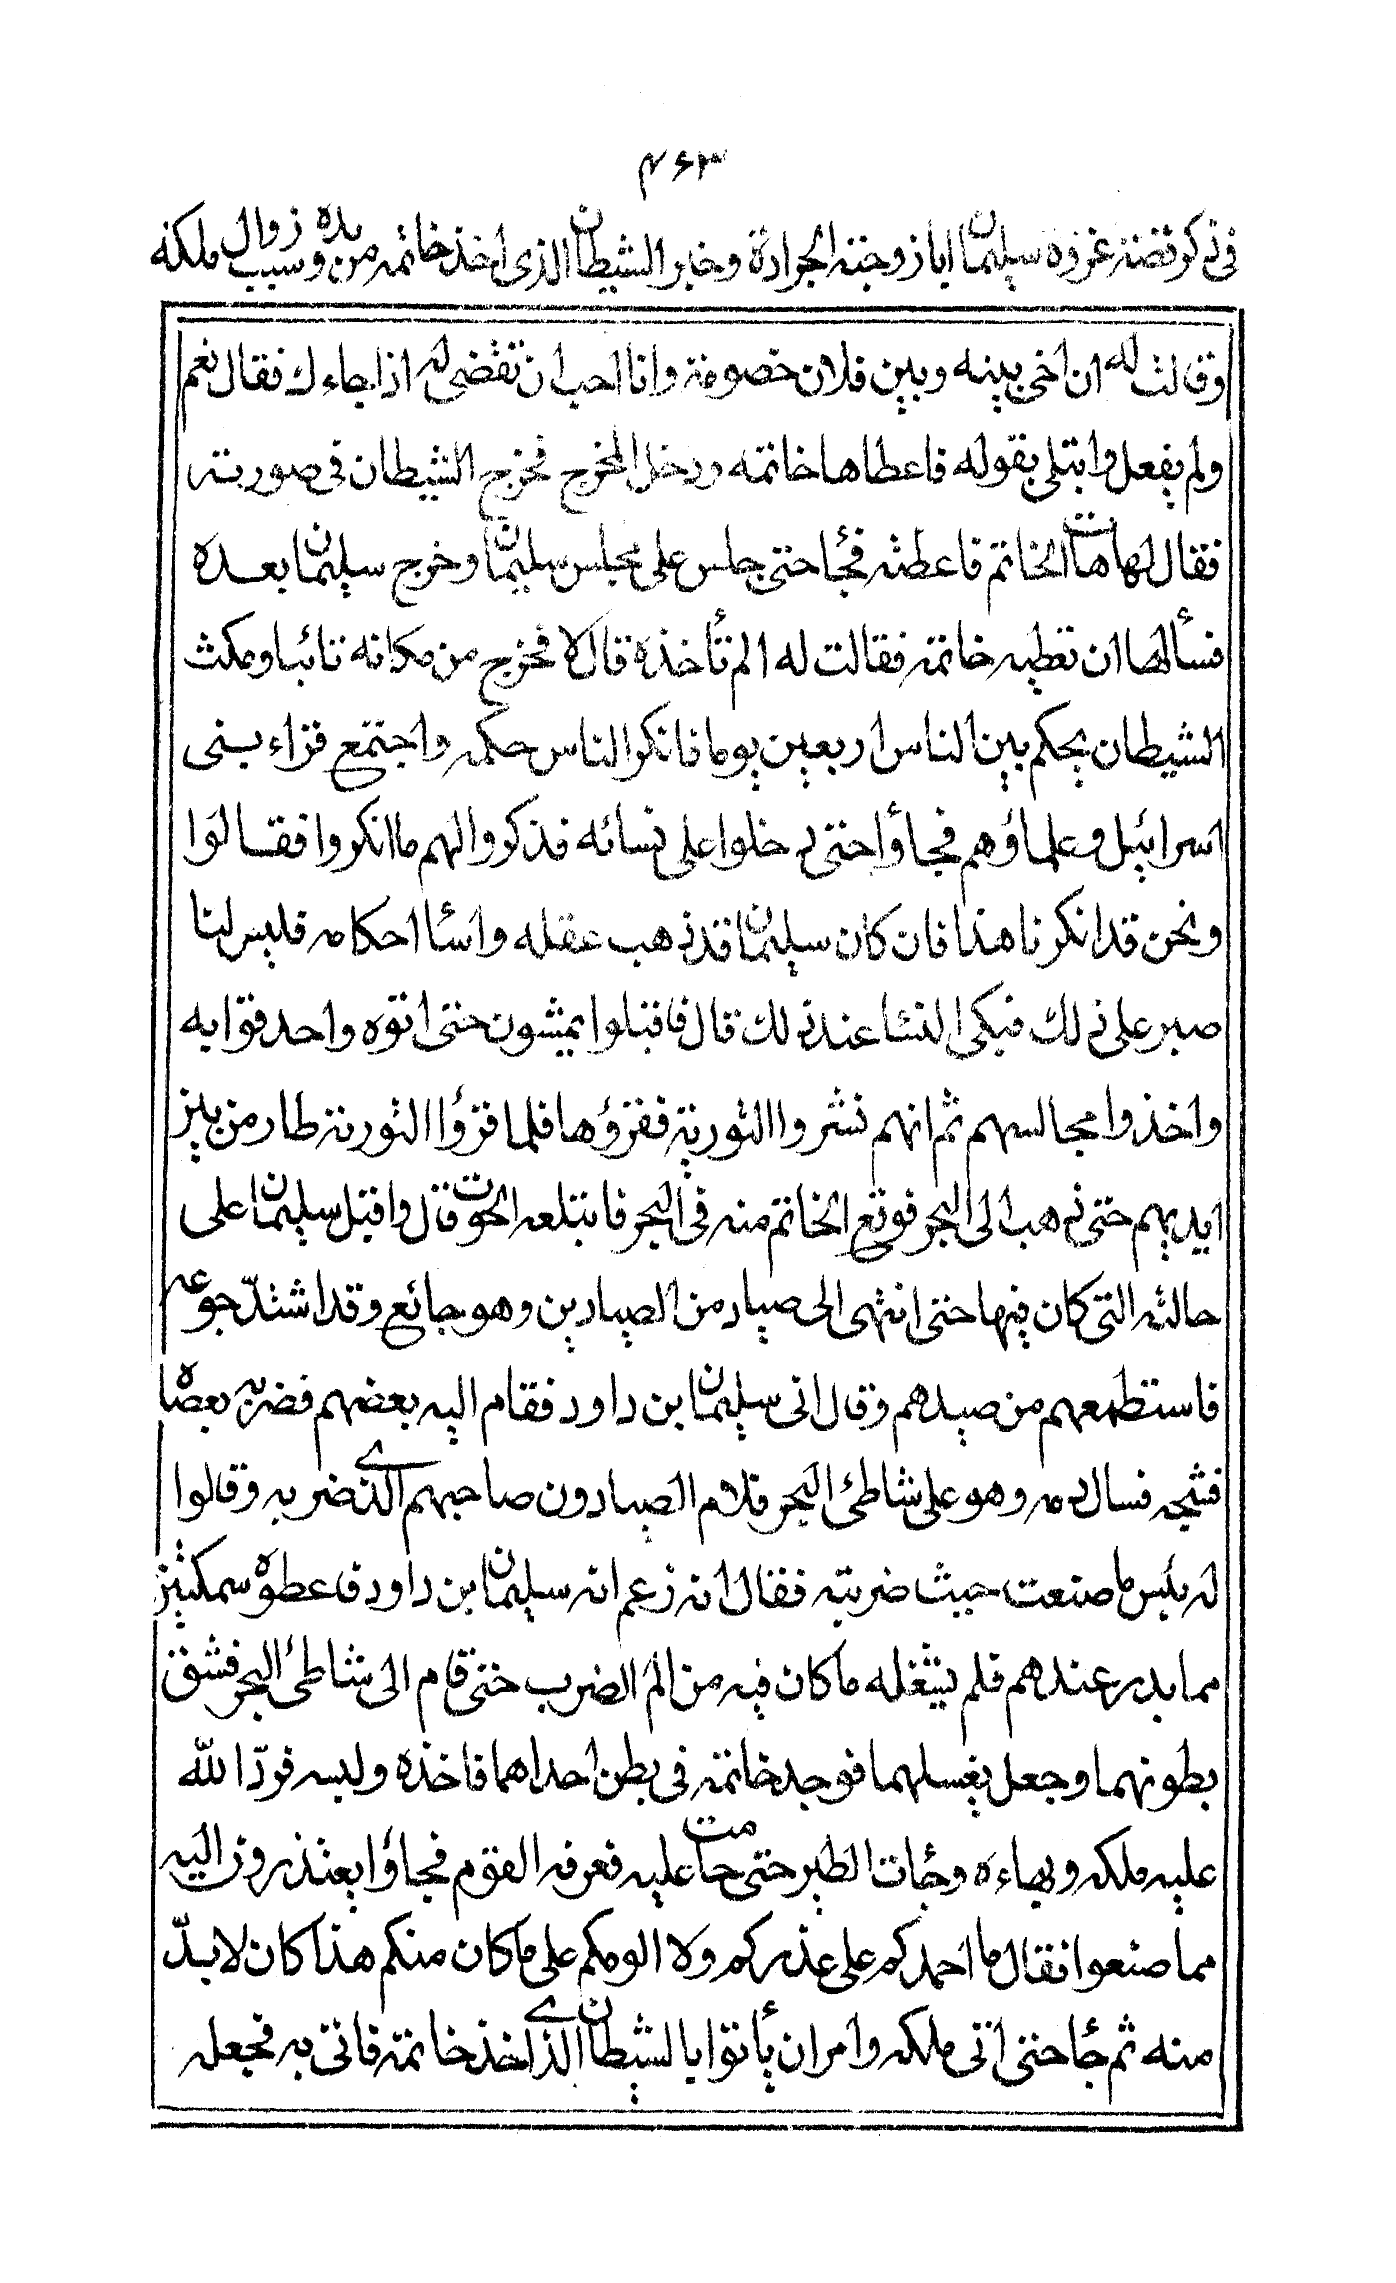 ۴۶۳
فی ذکر قصة غزوة سلیمان ابا زوجته الجرادة وخبر الشیطان الذی اخذ خاتمه من یده وسبب زوال ملکه
وقالت له ان اخی بینه وبین فلان خصومة وانا احب ان تقضی له اذا جاءك فقال نعم
ولم یفعل وابتلی بقوله فاعطاها خاتمه ودخل المخرج فخرج الشیطان فی صورته
فقال لها هات الخاتم فاعطته فجٔا حتی جلس علی مجلس سلیمان وخرج سلیمان بعده
فسألها ان تعطیه خاتمه فقالت له الم تأخذه قال لا فخرج من مکانه تائبا ومکث
الشیطان یحکم بین الناس اربعین یوما فانکر الناس حکمه واجتمع قراء بنی
اسرائیل وعلماؤهم فجاؤا حتی دخلوا علی نسائه فذکروا لهم ما انکروا فقالوا
ونحن قد انکرنا هذا فان کان سلیمان قد ذهب عقله واسٔا احکامه فلیس لنا
صبر علی ذلك فبکی النسٔا عند ذلك قال فاقبلوا یمشون حتی اتوه واحدقوا به
واخذوا مجالسهم ثم انهم نشروا التوریة فقرؤها فلما قرؤا التوریة طار من بین
ایدیهم حتی ذهب الی البحر فوقع الخاتم منه فی البحر فابتلعه الحوت قال واقبل سلیمان علی
حالته التی کان فیها حتی انتهی الی صیاد من الصیادین وهو جائع وقد اشتدّ جوعه
فاستطعمهم من صیدهم وقال انی سلیمان بن داود فقام الیه بعضهم فضربه بعصاه
فشجه فسال دمه وهو علی شاطئ البحر فلام الصیادون صاحبهم الذی ضربه وقالوا
له بئس ما صنعت حیث ضربته فقال انه زعم انه سلیمان بن داود فاعطوه سمکتین
مما بدر عندهم فلم یشغله ما کان فیه من الم الضرب حتی قام الی شاطئ البحر فشق
بطونهما وجعل یغسلهما فوجد خاتمه فی بطن احداهما فاخذه ولبسه فردّ الله
علیه ملکه وبهاءه وجٔات الطیر حتی حامت علیه فعرفه القوم فجاؤا یعتذرون الیه
مما صنعوا فقال ما احمدکم علی عذرکم ولا الومکم علی ما کان منکم هذا کان لا بدّ
منه ثم جٔا حتی اتی ملکه وامر ان یأتوا بالشیطان الذی اخذ خاتمه فاتی به فجعله